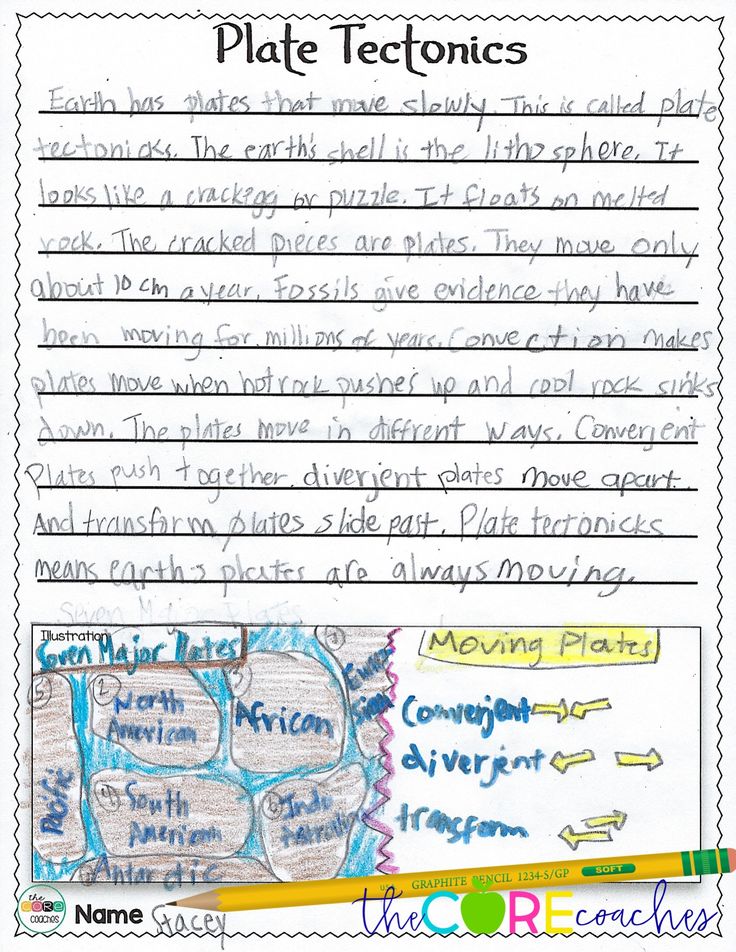 Plate Tectonics
Earth has plates that move slowly. This is called plate
tectonicks. The earth's shell is the lithosphere. It
looks like a crack egg or puzzle. It floats on melted
rock. The cracked pieces are plates. They move only
about 10 cm a year. Fossils give evidence they have
been moving for millions of years. Convection makes
plates move when hot rock pushes up and cool rock sinks
down. The plates move in diffrent ways. Converjent
Plates push together. diverjent plates move apart.
And transform plates slide past. Plate tectonicks
means earth's plates are always moving.
Seven Major Plates
Illustration
Seven Major Plates
Moving Plates
5
Pacific
2
North
American
3
African
7
Eura
sian
4
South
American
6
Indo
Antarctic
Converjent
diverjent
transform
US
GRAPHITE PENCIL 1234-5/GP
SOFT
the
CORE
coaches
Name Stacey
the CORE coaches